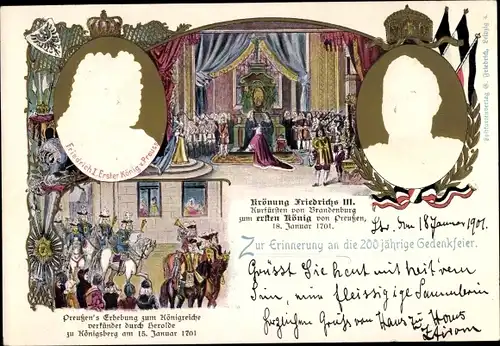 Friedrich I. Erster König v. Preuss.
Krönung Friedrichs III.
Kurfürsten von Brandenburg
zum ersten König von Preußen,
18. Januar 1701.
den 18 Januar 1901.
Zur Erinnerung an die 200jährige Gedenkfeier.
Grüsst Sie heut mit heit'rem
Sinn, eine fleissige Sammlerin
Herzlichen Gruss von Haus zu Haus
Preußen's Erhebung zum Königreiche
verkündet durch Herolde
zu Königsberg am 15. Januar 1701